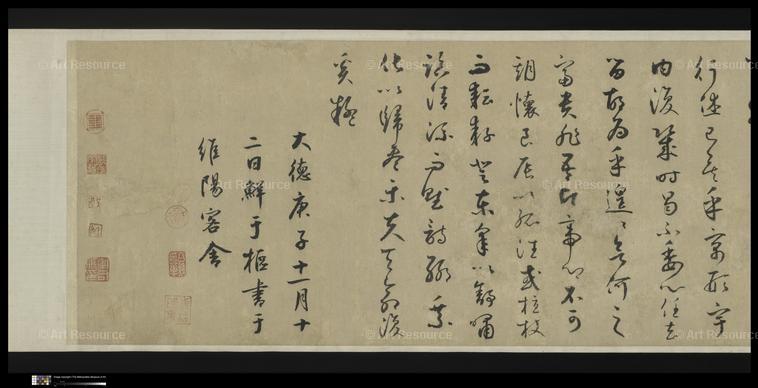 行往已矣乎寓形宇
內復幾時曷不委心任去
留胡為乎遑遑兮欲何之
富貴非吾願帝鄉不可
期懷良辰以孤往或植杖
而耘耔登東皋以舒嘯
臨清流而賦詩聊乘
化以歸盡樂夫天命復
奚疑
大德庚子十一月十
二日鮮于樞書于
維陽客舍
© Art Resource
© Art Resource
© Art Resource
© Art Resource
© Art Resource
© Art Resource
© Art Resource
© Art Resource
© Art Resource